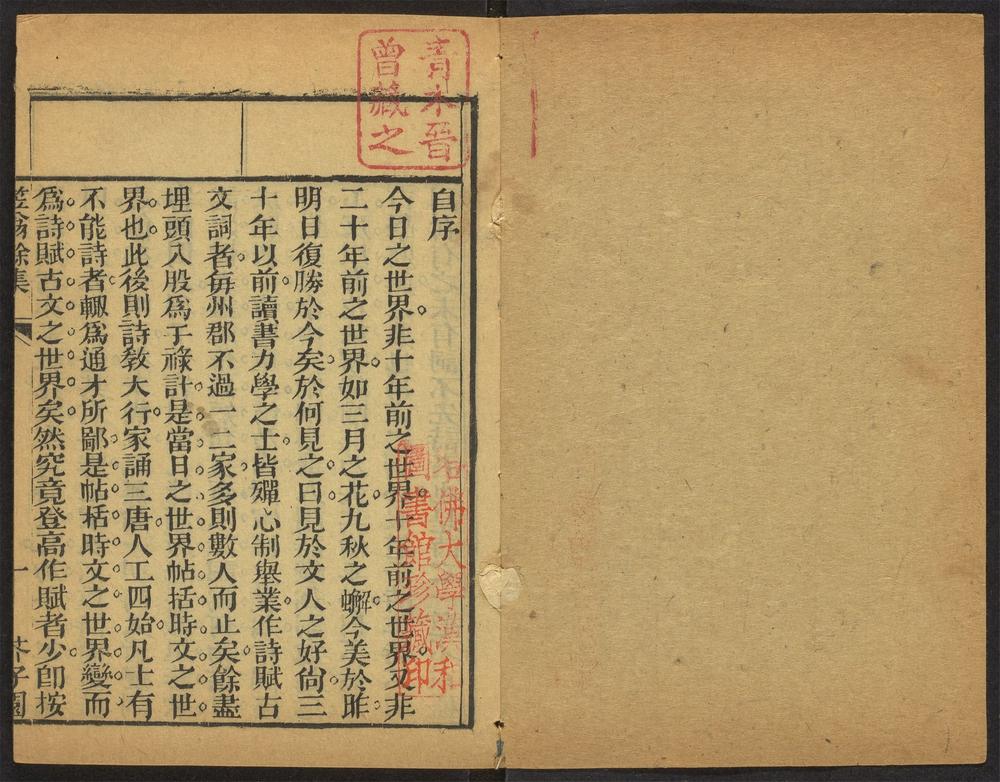 青木晉
曾藏之
自序
今日之世界非十年前之世界十年前之世界又非
二十年前之世界如三月之花九秋之蠏今美於昨
明日復勝於今矣於何見之曰見於文人之好尙三
十年以前讀書力學之士皆殫心制舉業作詩賦古
文詞者每州郡不過一二家多則數人而止矣餘盡
埋頭入股爲于祿計是當日之世界帖括時文之世
界也此後則詩敎大行家誦三唐人工四始凡士有
不能詩者輒爲通才所鄙是帖括時文之世界變而
爲詩賦古文之世界矣然究竟登高作賦者少卽按
笠翁餘集 一 芥子園
哈佛大學漢和
圖書館珍藏印